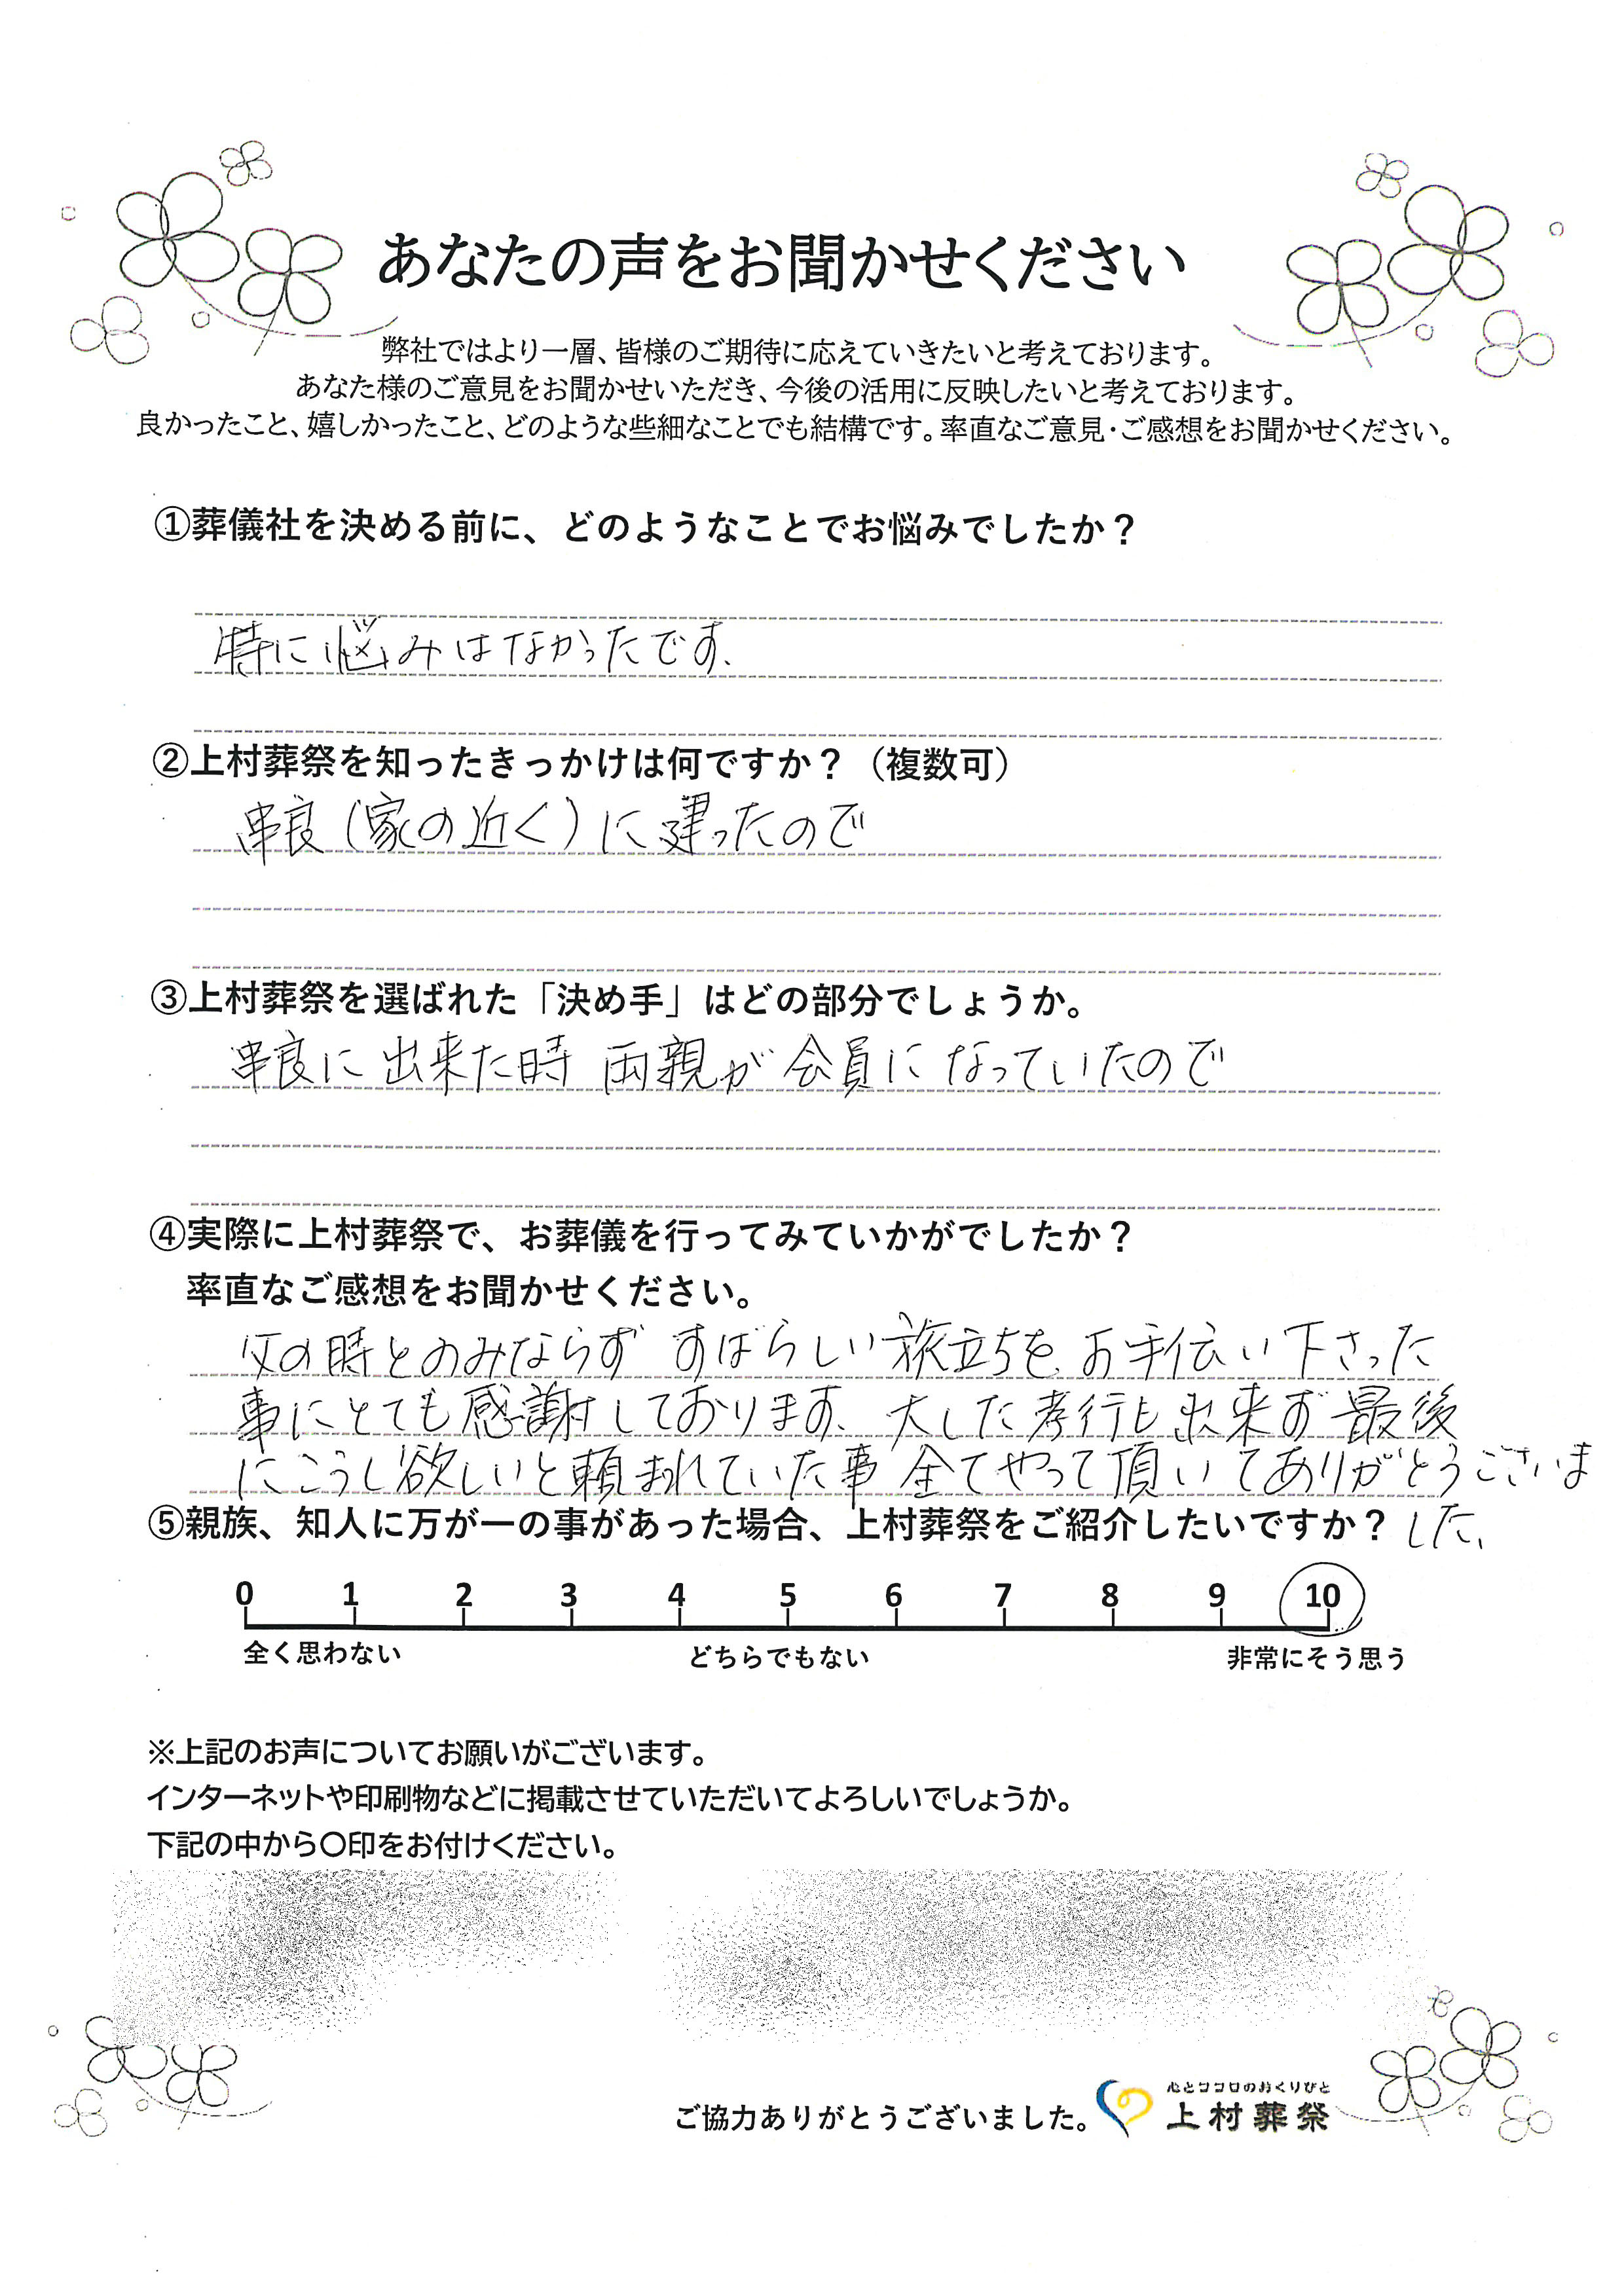 あなたの声をお聞かせください
弊社ではより一層、皆様のご期待に応えていきたいと考えております。
あなた様のご意見をお聞かせいただき、今後の活用に反映したいと考えております。
良かったこと、嬉しかったこと、どのような些細なことでも結構です。率直なご意見・ご感想をお聞かせください。
①葬儀社を決める前に、どのようなことでお悩みでしたか？
特に悩みはなかったです、
②上村葬祭を知ったきっかけは何ですか？（複数可）
串良（家の近く）に建ったので
③上村葬祭を選ばれた「決め手」はどの部分でしょうか。
串良に出来た時 両親が会員になっていたので
④実際に上村葬祭で、お葬儀を行ってみていかがでしたか？
率直なご感想をお聞かせください。
父の時とのみならず すばらしい旅立ちを お手伝い下さった
事にとても感謝しております、大した孝行も出来ず最後
にこうし欲しいと頼まれていた事 全てやって頂いてありがとうございま
した、
⑤親族、知人に万が一の事があった場合、上村葬祭をご紹介したいですか？
0 1 2 3 4 5 6 7 8 9 10
全く思わない どちらでもない 非常にそう思う
※上記のお声についてお願いがございます。
インターネットや印刷物などに掲載させていただいてよろしいでしょうか。
下記の中から〇印をお付けください。
ご協力ありがとうございました。
心とココロのおくりびと
上村葬祭